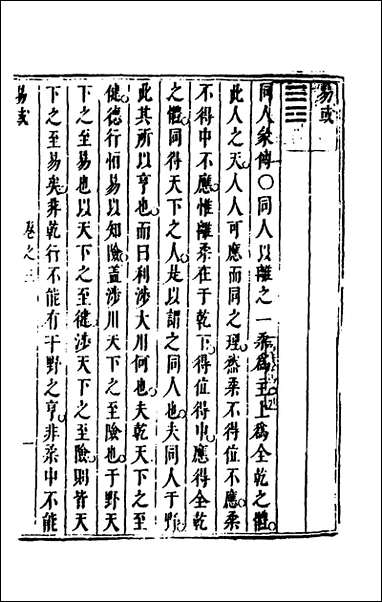 易或
同人彖傳○同人以離之一柔為主上為全乾之體
此人之天人人可應而同之理然柔不得位不應柔
不得中不應惟離柔在于乾下得位得中應得全乾
之體同得天下之人是以謂之同人也夫同人于野
此其所以亨也而曰利涉大川何也夫乾天下之至
健德行恒易以知險蓋涉川天下之至險也于野天
下之至易也以天下之至健涉天下之至險則皆天
下之至易矣非乾行不能有于野之亨非柔中不能
易或
卷之三
一